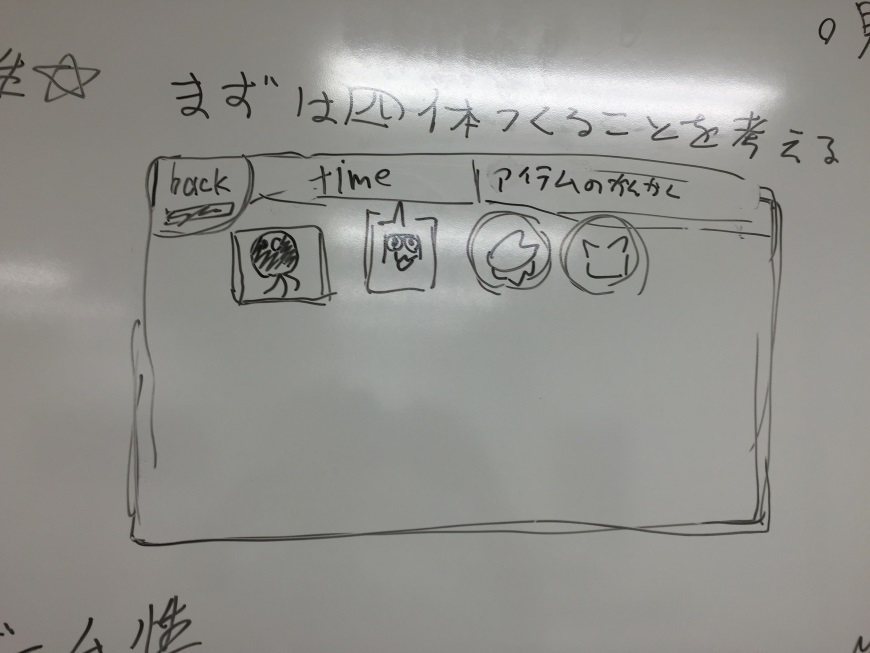 まずは四体つくることを考える
back
time
アイテムの
性